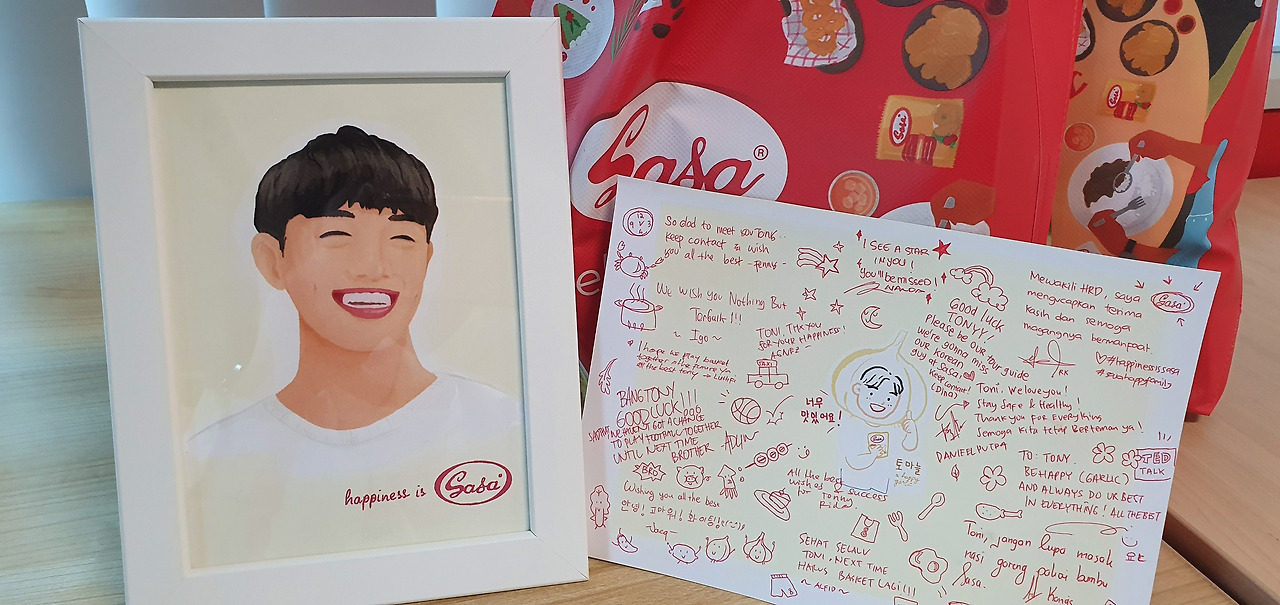 happiness is Sasa
Sasa®
So glad to meet you Tony..
keep contact & wish
you all the best -Fenny-
We wish you Nothing But
Terbaik!!!
~ Igo ~
I hope to play basket
together in the future ya
all the best tony → Luthfi
BANG TONY
GOOD LUCK!!!
UNTIL NEXT TIME
BROTHER
BRO
Wishing you all the best
안녕! 고마워! 화이팅!
- Jacq -
TONI, THK YOU
FOR YOUR HAPPINESS!
AGNEZ
TAXI
I SEE A STAR
IN YOU!
You'll be missed!
NANDA
GOOD LUCK
TONYY!
Please be our tour guide
we're gonna miss
our korean
guy at Sasa
너무
맛있어요!
Sasa
토마늘
All the best
wish a success
for Tonny
Rida
SEHAT SELALU
TONI, NEXT TIME
HARUS BASKET LAGI!!!
~ ALFID ~
Mewakili HRD, saya
mengucapkan terima
kasih dan semoga
magangnya bermanfaat.
RK
Sasa
#happinessissasa
Toni, we love you!
Stay Safe & Healthy!
Thank you for Everything
Semoga kita tetap berteman ya!
DANIEL PUTRA
TO: TONY.
BE HAPPY (GARLIC)
AND ALWAYS DO UR BEST
IN EVERYTHING! ALL THE BEST
TED
TALK
Toni, jangan lupa masak
nasi goreng pakai bumbu
Sasa.